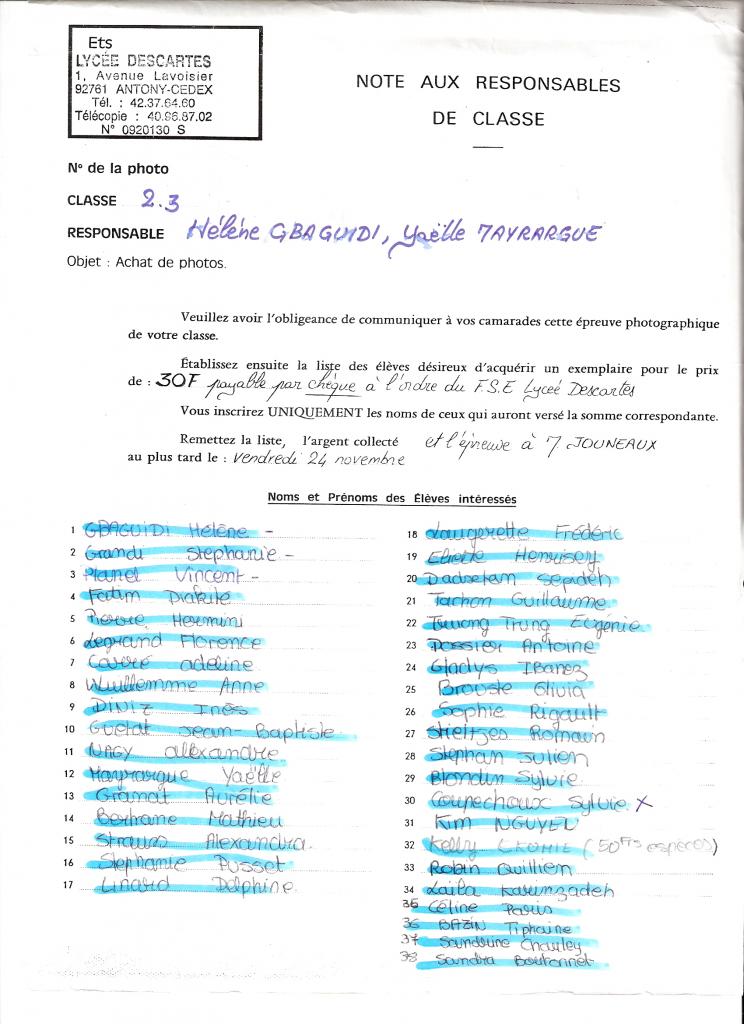 Ets
LYCÉE DESCARTES
1, Avenue Lavoisier
92761 ANTONY-CEDEX
Tél. : 42.37.64.60
Télécopie : 40.96.87.02
N° 0920130 S
NOTE AUX RESPONSABLES
DE CLASSE
N° de la photo
CLASSE 2.3
RESPONSABLE Hélène GBAGUIDI, Yaëlle MAYRARGUE
Objet : Achat de photos.
Veuillez avoir l'obligeance de communiquer à vos camarades cette épreuve photographique
de votre classe.
Établissez ensuite la liste des élèves désireux d'acquérir un exemplaire pour le prix
de : 30F payable par chèque à l'ordre du F.S.E Lyceé Descartes
Vous inscrirez UNIQUEMENT les noms de ceux qui auront versé la somme correspondante.
Remettez la liste, l'argent collecté et l'épreuve à JOUNEAUX
au plus tard le : vendredi 24 novembre
Noms et Prénoms des Élèves intéressés
1 GBAGUIDI Hélène -
2 Grandi Stephanie -
3 Planel Vincent -
4 Fatim Diakité
5 Pierre Hermini
6 Legrand Florence
7 adeline
8 Wuillemme Anne
9 DINIZ Inès
10 Guetat Jean-Baptiste
11 NAGY alexandre
12 Mayrargue Yaëlle
13 Gramat Aurélie
14 Bertrame Mathieu
15 Strauss Alexandra.
16 Stephanie Pusset
17 Linard Delphine.
18 Frédéric
19 Eliette
20 Sepideh
21 Tachon Guillaume
22 Truong Trung Eugénie
23 Dossier Antoine
24 Gladys IBanez
25 Brouste Olivia
26 Sophie Rigault
27 Romain
28 Stephan Julien
29 Blondin Sylvie
30 Coupechoux Sylvie X
31 Kim NGUYEN
32 Kelly (50Frs espèces)
33 Robin Quillien
34 Laila Karimzadeh
35 Céline Paris
36 BAZIN Tiphaine
37 Sandrine Chauley
38 Sandra Boutonnet